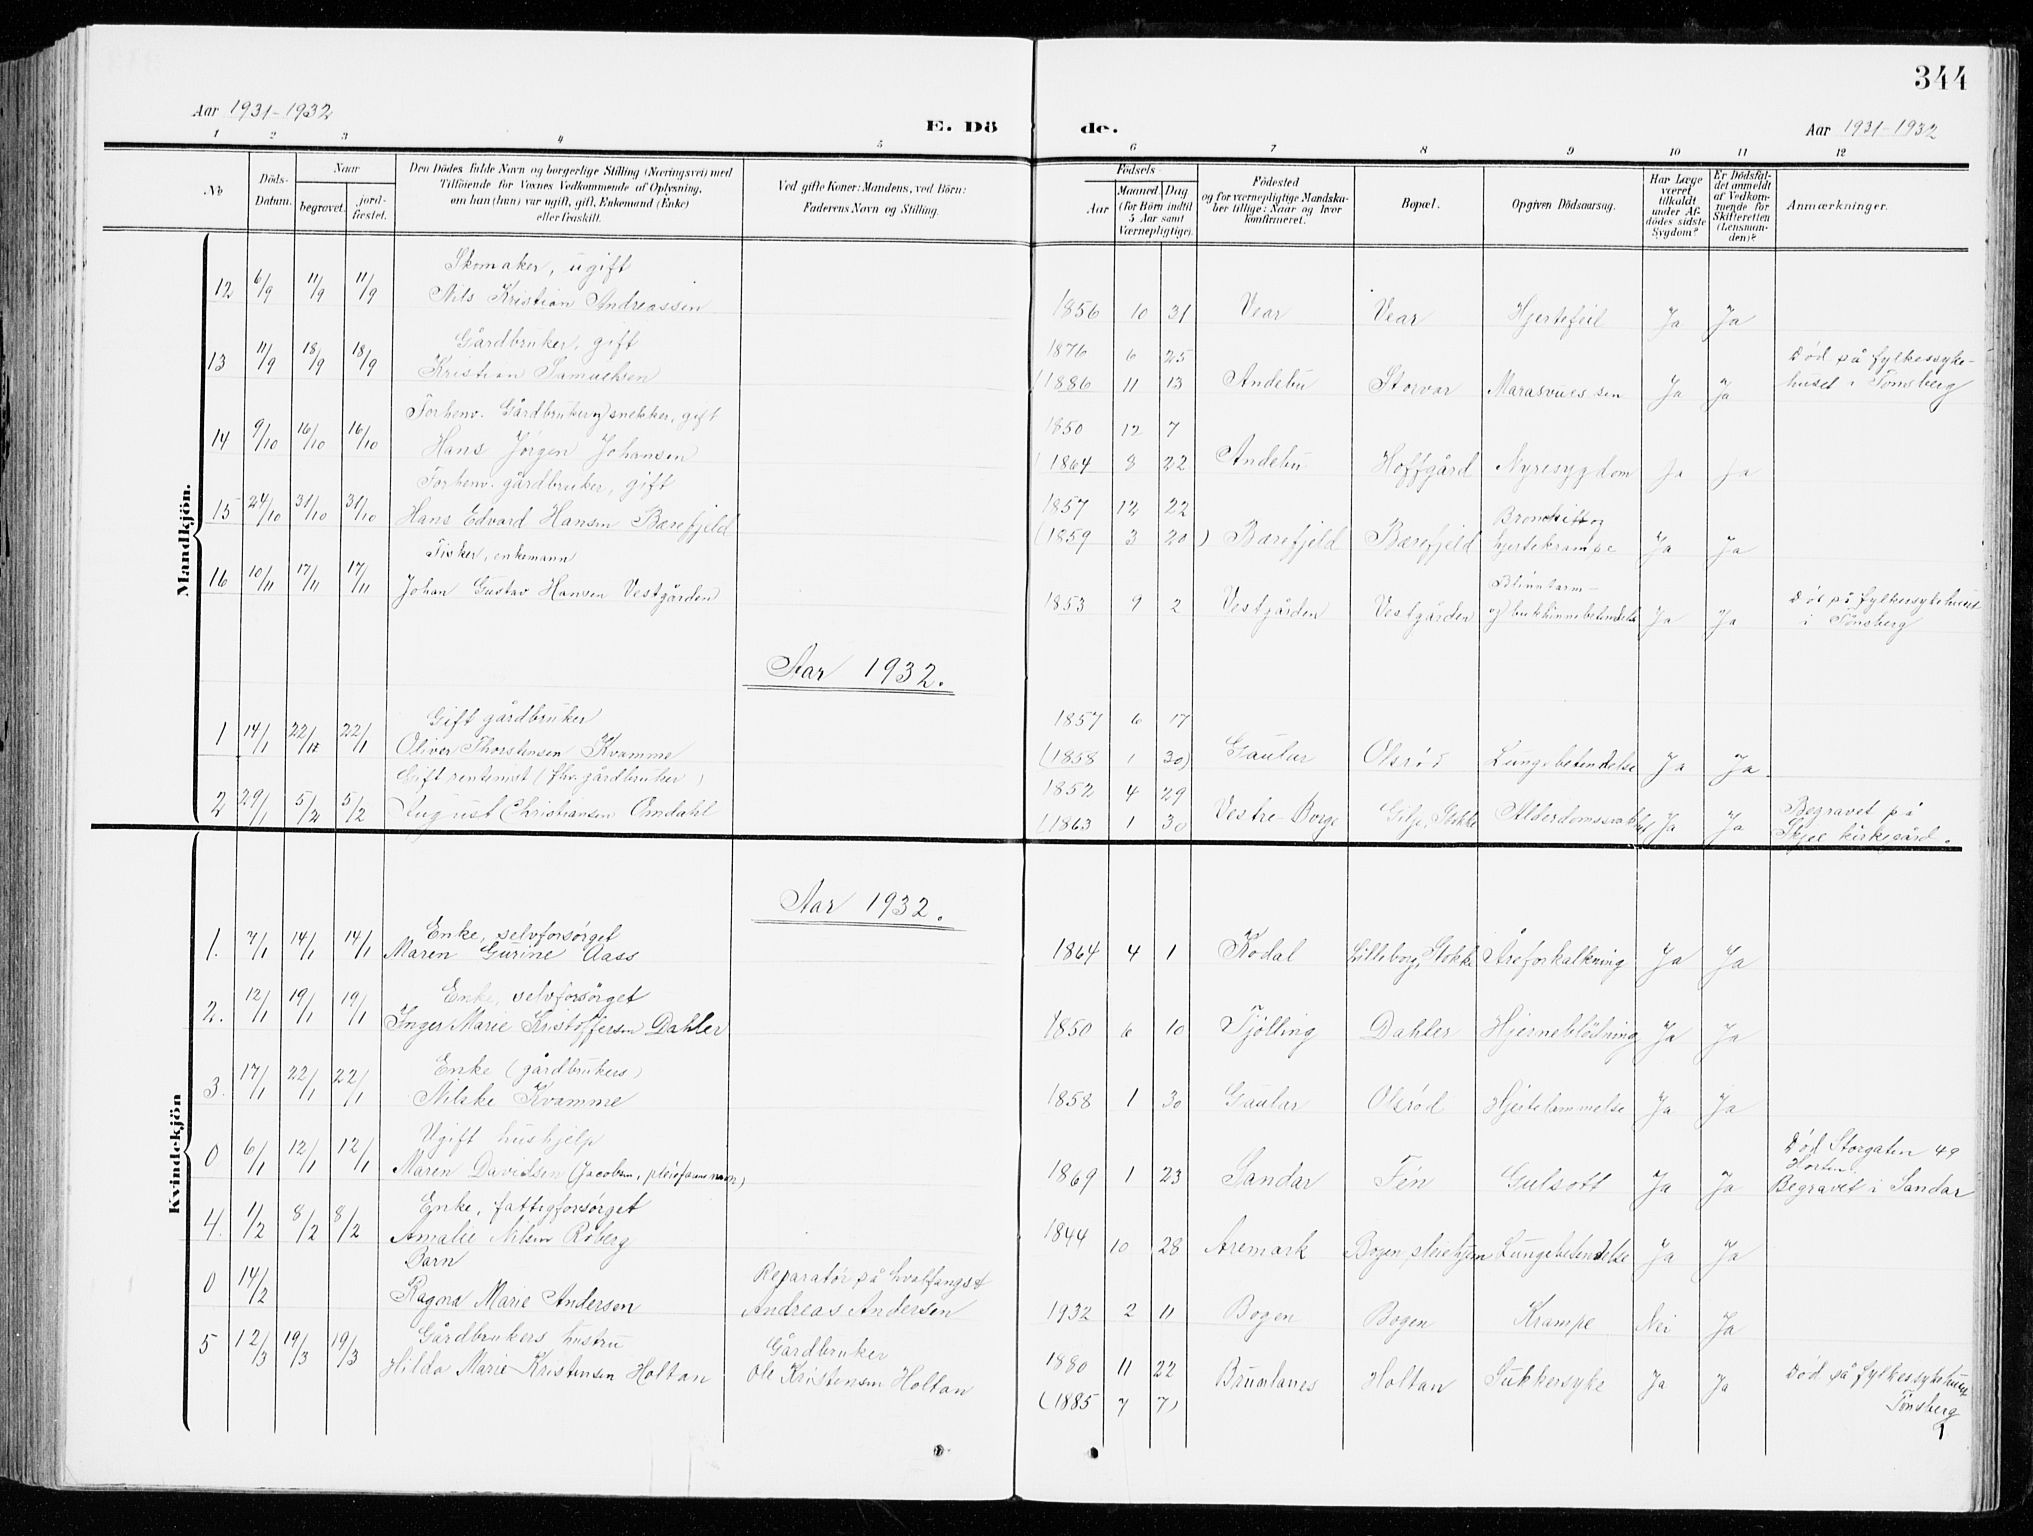 344
Aar 1931-1932
E. Dö
de.
Aar 1931-1932
1 2 3 4 5 6 7 8 9 10 11 12
No
Döds-
Datum.
Naar
begravet.
jord-
fæstet.
Den Dödes fulde Navn og borgerlige Stilling (Næringsvei) med
Tilföiende for Voxnes Vedkommende af Oplysning,
om han (hun) var ugift, gift, Enkemand (Enke)
eller fraskilt.
Ved gifte Koner: Mandens, ved Börn:
Faderens Navn og Stilling.
Födsels-
Aar
Maaned. Dag
(for Börn indtil
5 Aar samt
Værnepligtige).
Födested
og for værnepligtige Mandska-
ber tillige: Naar og hvor
konfirmeret.
Bopæl.
Opgiven Dödsaarsag.
Har Læge
været
tilkaldt
under Af-
dödes sidste
Sygdom?
Er Dödsfal-
det anmeldt
af Vedkom-
mende for
Skifteretten
(Lensman-
den)?
Anmærkninger.
Mandkjön.
Skomaker, ugift
12 6/9 11/9 11/9 Nils Kristian Andreassen 1856 10 31 Vear Vear Hjertefeil Ja Ja
Gårdbruker, gift 1876 6 25 Død på fylkessyke-
13 11/9 18/9 18/9 Kristian Samuelsen (1886 11 13 Andebu Storvar Ja Ja huset i Tønsberg
Forhenv. Gårdbruker og snekker, gift 1850 12 7
14 9/10 16/10 16/10 Hans Jørgen Johansen (1864 3 22 Andebu Hoffgård Nyresygdom Ja Ja
Forhenv. gårdbruker, gift 1857 12 22 Bronkitt og
15 24/10 31/10 31/10 Hans Edvard Hansen Bærefjeld (1859 3 20) Bærefjeld Bærefjeld hjertekrampe Ja Ja
Fisker, enkemann Blinntarm-
16 10/11 17/11 17/11 Johan Gustav Hansen Vestgården 1853 9 2 Vestgården Vestgården og bukhinnebetendelse Ja Ja Død på fylkessykehuset
i Tønsberg
Aar 1932.
Gift gårdbruker 1857 6 17
1 14/1 22/1 22/1 Oliver Thorstensen Kvamme (1858 1 30) Gaular Olsrød Lungebetendelse Ja Ja.
Gift rentenist (fhv. gårdbruker) 1852 4 29
2 29/1 5/2 5/2 August Christiansen Omdahl (1863 1 30 Vestre-Borge Gilje, Stokke Ja Ja Begravet på
Skjee kirkegård.
Kvindekjön
Aar 1932.
Enke, selvforsørget
1. 7/1 14/1 14/1 Maren Gurine Aass 1864 4 1 Kodal Lilleborg, Stokke Åreforkalkning Ja Ja
Enke, selvforsørget
2. 12/1 19/1 19/1 Inger Marie Kristoffersen Dahler 1850 6 10 Tjølling Dahler Hjerneblødning Ja Ja
Enke (gårdbrukers)
3. 17/1 22/1 22/1 Nilske Kvamme 1858 1 30 Gaular Olsrød Hjertelammelse Ja Ja
Ugift hushjelp Død Storgaten 49
Horten.
0 6/1 12/1 12/1 Maren Davidsen (Jacobsen, pleiefarens navn) 1869 1 23 Sandar Fén Gulsott Ja Ja Begravet i Sandar
Enke, fattigforsørget
4. 1/2 8/2 8/2 Amalie Nilsen Roberg 1844 10 28 Aremark Bogen pleiehjem Lungebetendelse Ja Ja
Barn Reparatør på hvalfangst
0 14/2 Ragna Marie Andersen Andreas Andersen 1932 2 11 Bogen Bogen Krampe Nei Ja
Gårdbrukers hustru Gårdbruker
5 12/3 19/3 19/3 Hilda Marie Kristensen Holtan Ole Kristensen Holtan 1880 11 22 Brunlanes Holtan Sukkersyke Ja Ja Død på fylkessykehuset
(1885 7 7) Tønsberg